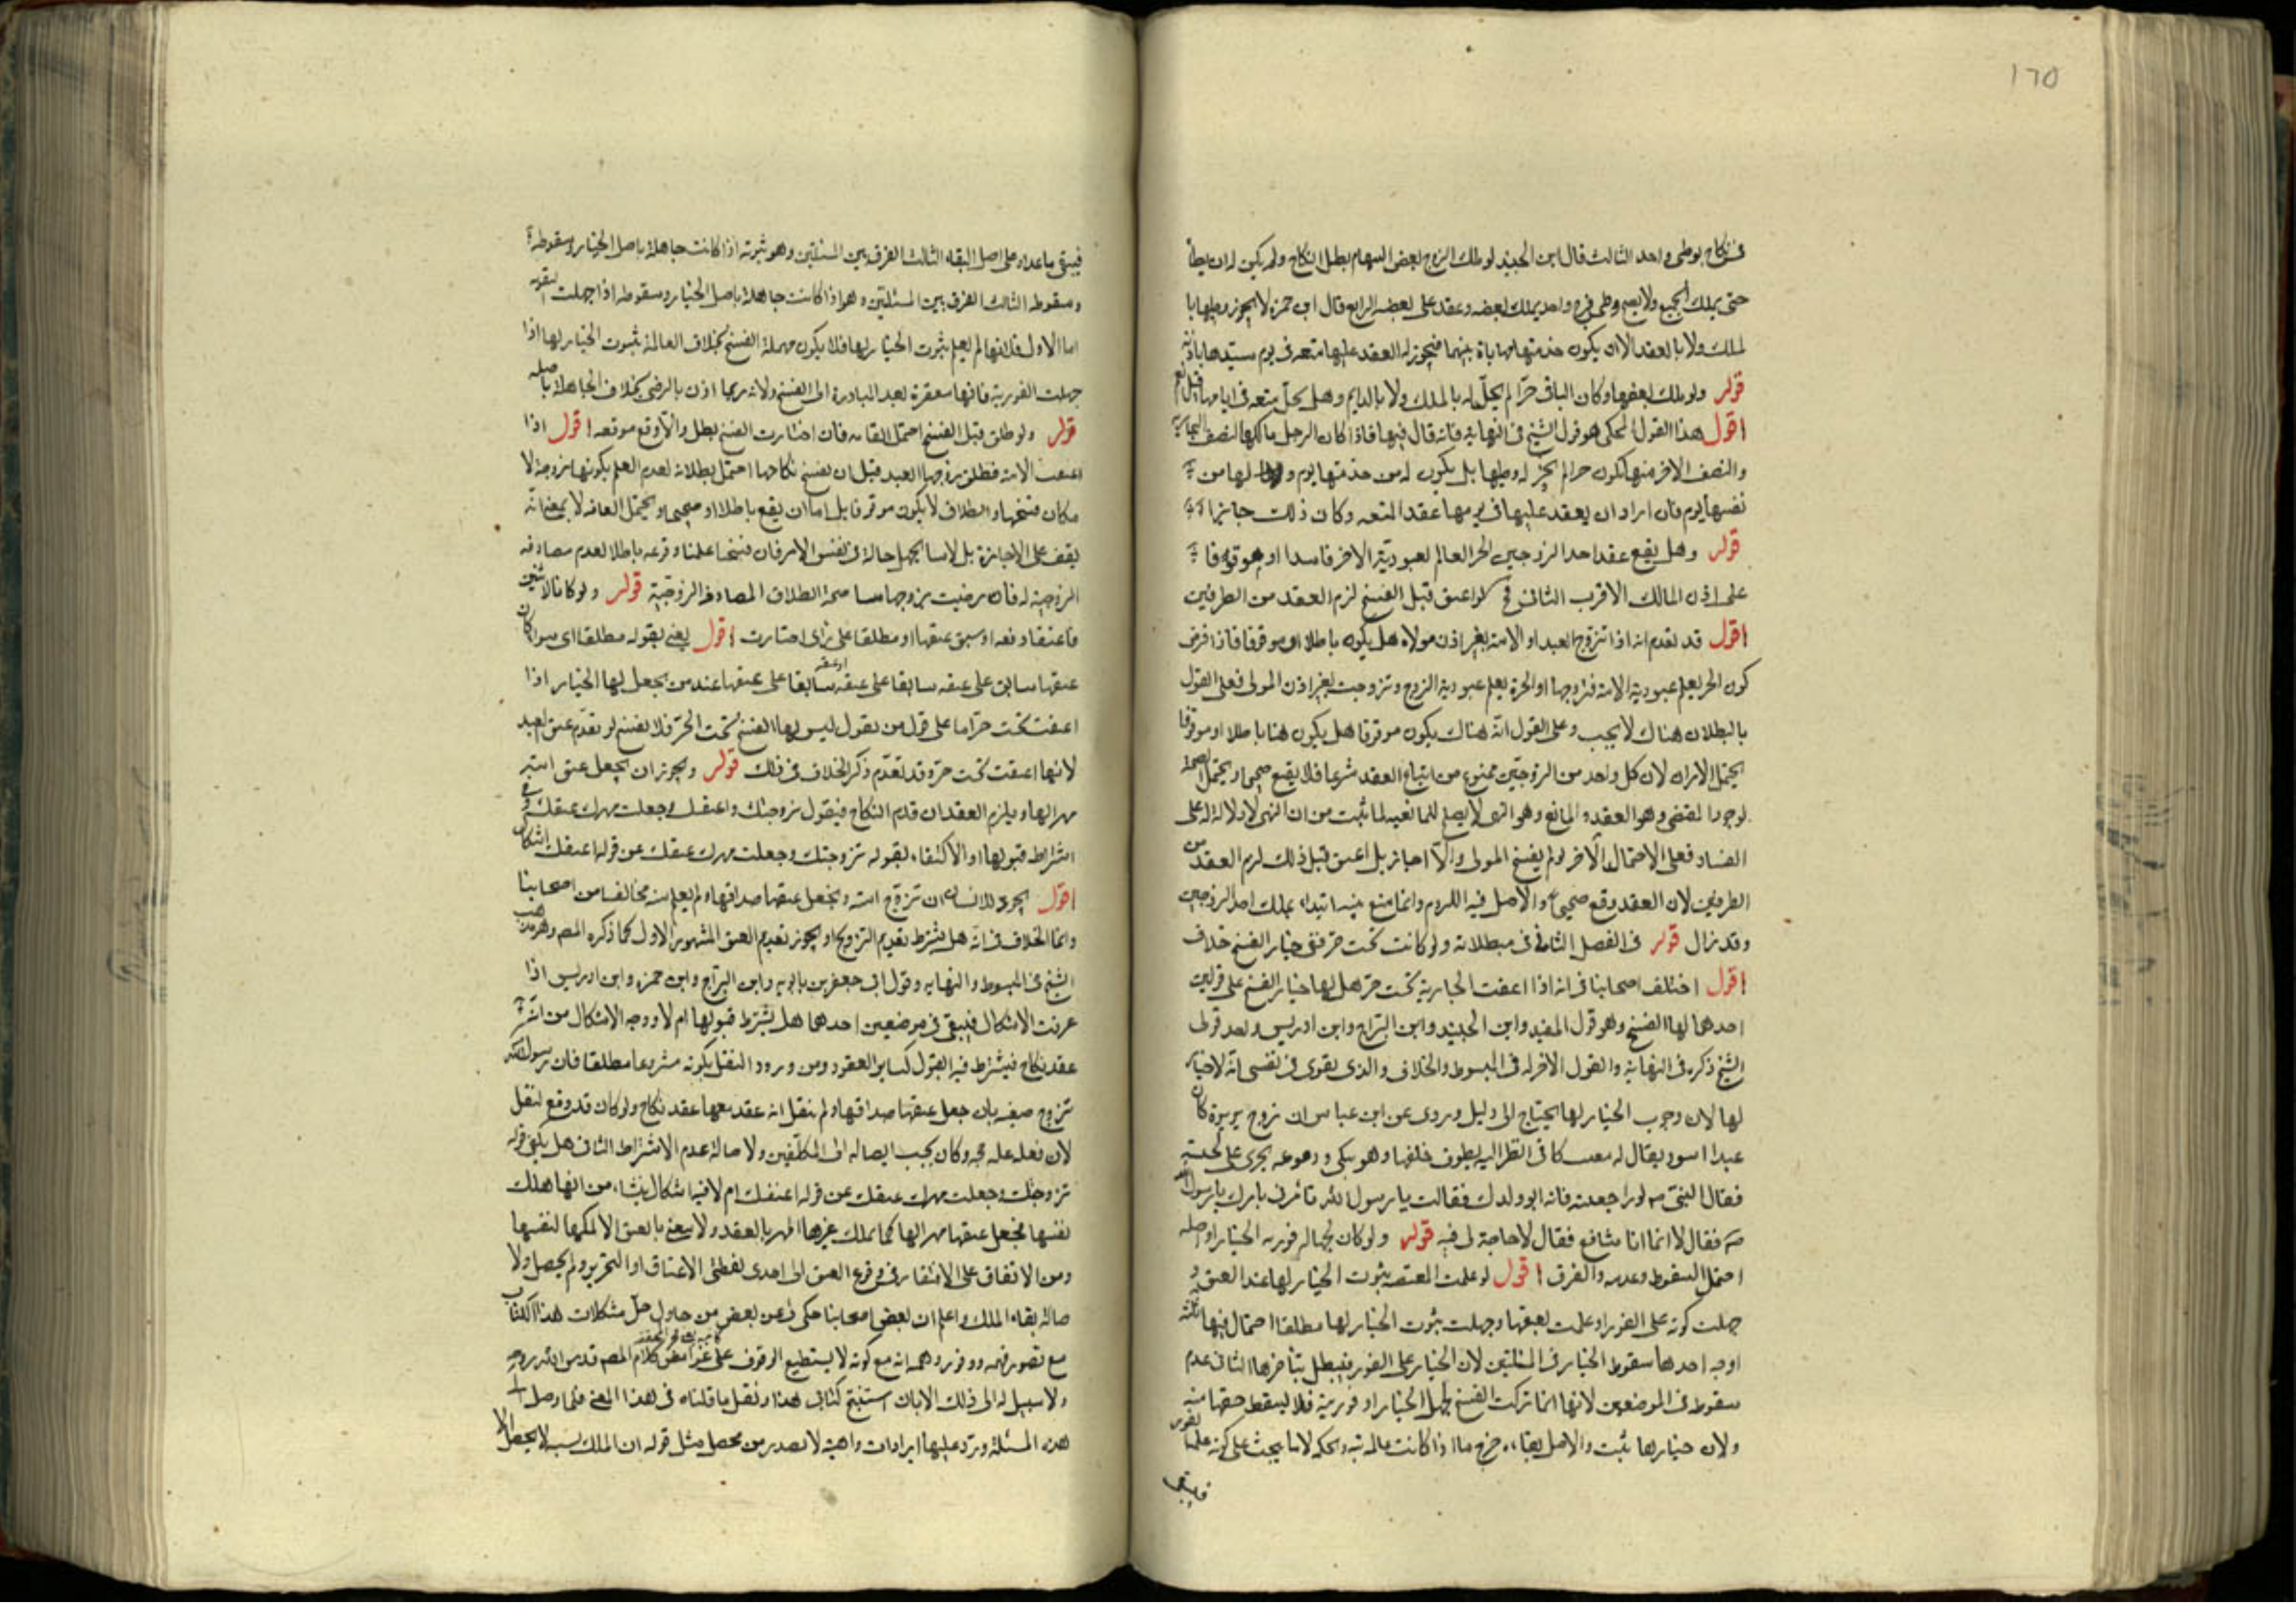 ١٦٥
فى نكاح بوطى واحد الثالث قال ابن الجنيد لو ملك الزوج بعض السهام بطل النكاح ولم يكن له ان يطأ
حتى يملك الجميع ولا يصح وطى فرج واحد يملك بعضه وعقد على بعضه الرابع قال ابن حمزه لا يجوز وطيها با
لملك ولا بالعقد الا ان يكون خدمتها مهاياة بينهما فيجوز له العقد عليها متعه فى يوم سيدها باذنه
قوله ولو ملك بعضها وكان الباقى حرّا لم يحلّ له بالملك ولا بالدايم وهل يحلّ متعه فى ايامها قيل نعم
اقول هذا القول المحكى هو قول الشيخ فى النهايه فانه قال فيها فاذا كان الرجل مالكا لنصف الجاريه
والنصف الاخر منها يكون حرا لم يجز له وطيها بل يكون له من خدمتها يوم ولها من
نفسها يوم فان اراد ان يعقد عليها فى يومها عقد المتعه وكان ذلك جايزا
قوله وهل يقع عقد احد الزوجين الحر العالم بعبوديّة الاخر فاسدا او موقوفا
على اذن المالك الاقرب الثانى فح لو اعتق قبل الفسخ لزم العقد من الطرفين
اقول قد تقدم انه اذا تزوج العبد او الامة بغير اذن مولاه هل يكون باطلا او موقوفا فاذا فرض
كون الحر يعلم عبودية الامة فتزوجها او الحرة يعلم عبودية الزوج وتزوجت بغير اذن المولى فعلى القول
بالبطلان هناك لا يجب وعلى القول انّه هناك يكون موقوفا هل يكون هنا باطلا او موقوفا
يحتمل الامران لان كل واحد من الزوجين ممنوع من ايقاع العقد شرعا فلا يقع صحيحا ويحتمل الصحة
لوجود المقتضى وهو العقد والمانع وهو النهى لا يصلح للمانعيه لما ثبت من ان النهى لا دلالة له على
الفساد فعلى الاحتمال الاخر لو لم يفسخ المولى ولا اجاز بل اعتق قبل ذلك لزم العقد من
الطرفين لان العقد وقع صحيحا والاصل فيه اللزوم وانما منع منه ابتداء بملك احد الزوجين
وقد زال قوله فى الفصل الثانى فى مبطلاته ولو كانت تحت حرّ ففى خيار الفسخ خلاف
اقول اختلف اصحابنا فى انه اذا اعتقت الجارية تحت حرّ هل لها خيار الفسخ على قولين
احدهما لها الفسخ وهو قول المفيد وابن الجنيد وابن البراج وابن ادريس واحد قولى
الشيخ ذكره فى النهاية والقول الاخر له فى المبسوط والخلاف والذى يقوى فى نفسى انّه لا خيار
لها لان وجوب الخيار لها يحتاج الى دليل وروى عن ابن عباس ان زوج بريرة كان
عبدا اسود يقال له مغيث كانى انظر اليه يطوف خلفها وهو يبكى ودموعه يجرى على لحيته
فقال النبىّ صه لو راجعته فانه ابو ولدك فقالت يا رسول الله تامرنى بامرك يا رسول الله
صه فقال لا انما انا شافع فقال لا حاجة لى فيه قوله ولو كان لجهاله فوريه الخيار او اصله
احتمل السقوط وعدمه والفرق اقول لو علمت المعتقه بثبوت الخيار لها عند العتق و
جهلت كونه على الفور او علمت بعتقها وجهلت ثبوت الخيار لها مطلقا احتمال فيها ثلثه
اوجه احدها سقوط الخيار فى المسئلتين لان الخيار على الفور فيبطل بتاخرها الثانى عدم
سقوط فى الموضعين لانها انما تركت الفسخ لجهل الخيار او فوريته فلا يسقط حقها منه
ولان خيارها ثبت والاصل بقاؤه خرج ما اذا كانت عالمه به
فيبقى
فيبقى ما عداه على اصل البقاء الثالث الفرق بين المسئلتين وهو ثبوته اذا كانت جاهلة باصل الخيار وسقوطه
وسقوطه الثالث الفرق بين المسئلتين وهو اذا كانت جاهلة باصل الخيار وسقوطه اذا جهلت الفوريه
اما الاول فلانها لم يعلم بثبوت الخيار لها فلا يكون مهملة الفسخ بخلاف العالمة بثبوت الخيار لها اذا
جهلت الفورية فانها مقصرة لعدم المبادرة الى الفسخ ولانه ربما اذن بالرضى بخلاف الجاهلة باصله
قوله ولو طلق قبل الفسخ احتمل ايقاعه فان اختارت الفسخ بطل والّا وقع موقعه اقول اذا
اعتقت الامة فطلق زوجها العبد قبل ان يفسخ نكاحها احتمل بطلانه لعدم العلم بكونها زوجة لا
مكان فسخها والطلاق لا يكون موقوفا بل اما ان يقع باطلا او صحيحا ويحتمل ايقاعه لا بمعنى انّه
يقف على الاجازة بل لانا نجهل حاله فى نفس الامر فان فسخا علمنا وقوعه باطلا لعدم مصادفه
الزوجية له فان رضيت بزوجها صحة الطلاق المصادف الزوجيّة قوله ولو كانا لاثنين
فاعتقا دفعه او سبق عتقها او مطلقا على راى اختارت اقول يعنى بقوله مطلقا اى سوا كان
عتقها سابق على عتقه او عتقه سابقا على عتقها عند من يجعل لها الخيار اذا
اعتقت تحت حرّ اما على قول من يقول ليس لها الفسخ تحت الحرّ فلا يفسخ لو تقدّم عتق العبد
لانها اعتقت تحت حرّ وقد تقدّم ذكر الخلاف فى ذلك قوله ويجوز ان يجعل عتق امته
مهرا لها ويلزم العقد ان قدم النكاح فيقول تزوجتك واعتقتك وجعلت مهرك عتقك وفى
اشتراط قبولها او الاكتفاء بقوله تزوجتك وجعلت مهرك عتقك عن قوله اعتقتك اشكال
اقول يجوز للانسان ان تزوج امته ويجعل عتقها صداقها ولم يعلم منه مخالفا من اصحابنا
وانما الخلاف فى انّه هل يشترط تقديم التزويج او يجوز تقديم العتق المشهور الاول كما ذكره المصه وهو مذهب
الشيخ فى المبسوط والنهايه وقول ابى جعفر بن بابويه وابن البرّاج وابن حمزه وابن ادريس اذا
عرفت الاشكال فيبقى فى موضعين احدهما هل يشترط قبولها ام لا ووجه الاشكال من انّه
عقد نكاح فيشترط فيه القبول كساير العقود ومن ورود النقل بكونه مشروعا مطلقا فان رسول الله
تزوج صفيه بان جعل عتقها صداقها ولم ينقل انه عقد معها عقد نكاح ولو كان قد وقع لنقل
لان فعله عليه حجه وكان يجب ايصاله الى المكلّفين ولاصالة عدم الاشتراط الثانى هل يكفى قوله
تزوجتك وجعلت مهرك عتقك عن قوله اعتقتك ام لا فيه اشكال ينشاء من انها ملك
نفسها بجعل عتقها مهرا لها كما يملك غيرها المهر بالعقد ولا معنى بالعتق الا تملكها لنفسها
ومن الاتفاق على الافتقار فى وقوع العتق الى احدى لفظتى الاعتاق او التحرير ولم يحصل ولا
صالة بقاء الملك واعلم ان بعض اصحابنا حكى لى عن بعض من حاول حلّ مشكلات هذا الكتاب
مع قصور فهمه ووفور وهمه انه مع كونه لا يستطيع الوقوف على غوامض كلام المصه قدس الله روحه
ولا سبيل له الى ذلك الابان استنسخ كتابى هذا ونقل ما قلناه فى هذا المعنى فلما وصل الى
هذه المسئلة ورد عليها ايرادات واهية لا تصدر من محصل مثل قوله ان الملك بسببه لا يحصل الا